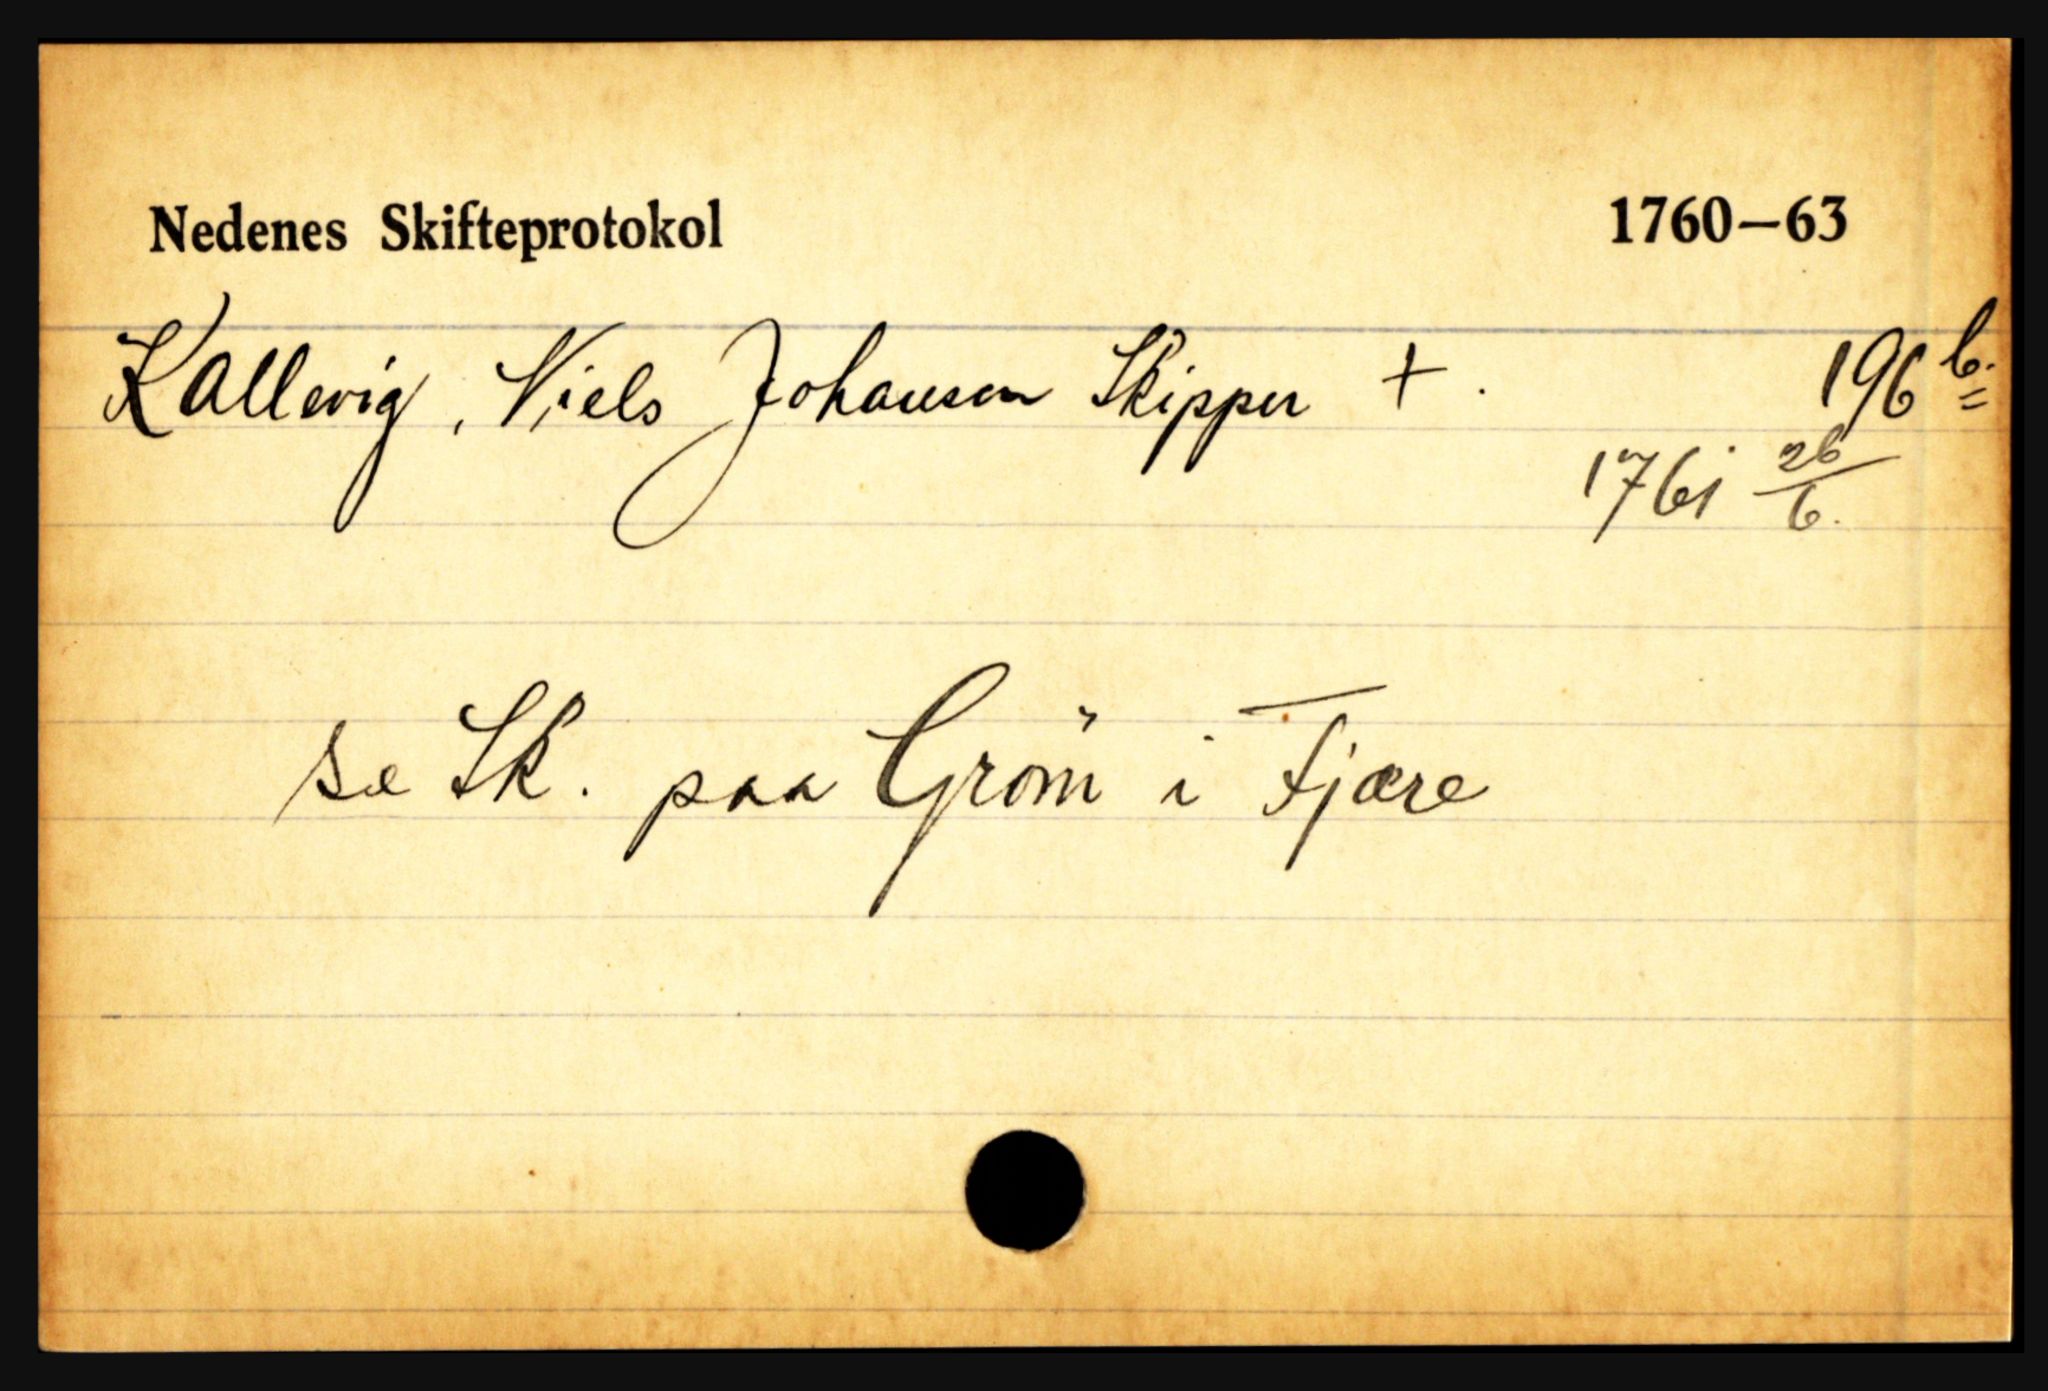 Nedenes Skifteprotokol 1760–63
Kallevig, Niels Johansen Skipper + . 196 b.
1761 26/6.
se Sk. paa Grøm i Fjære